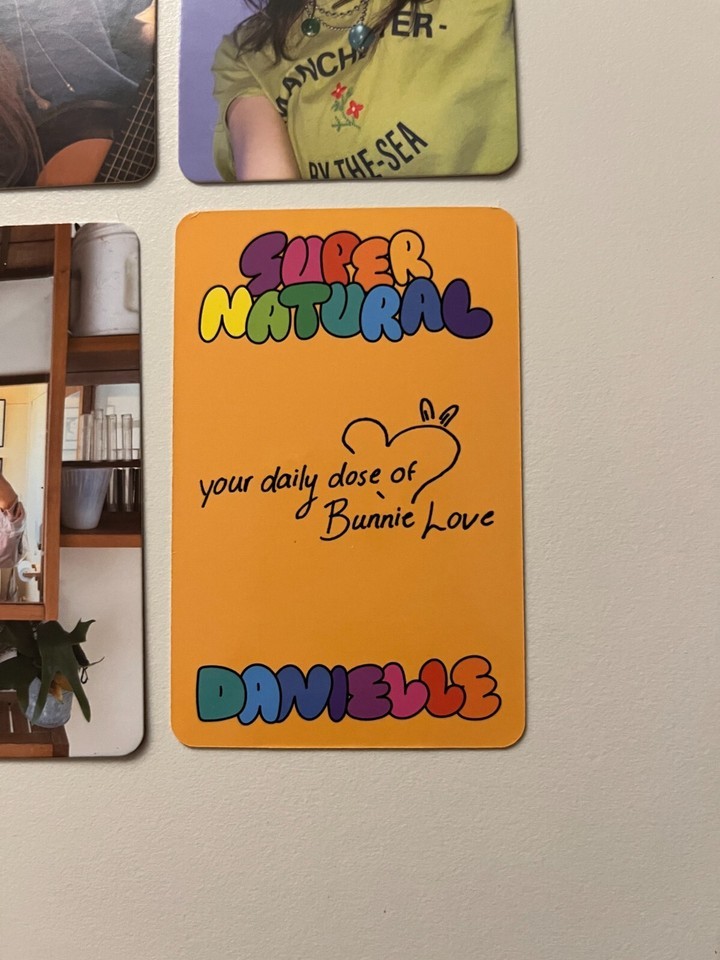 MANCHESTER-
BY-THE-SEA
SUPER
NATURAL
your daily dose of
Bunnie Love
DANIELLE